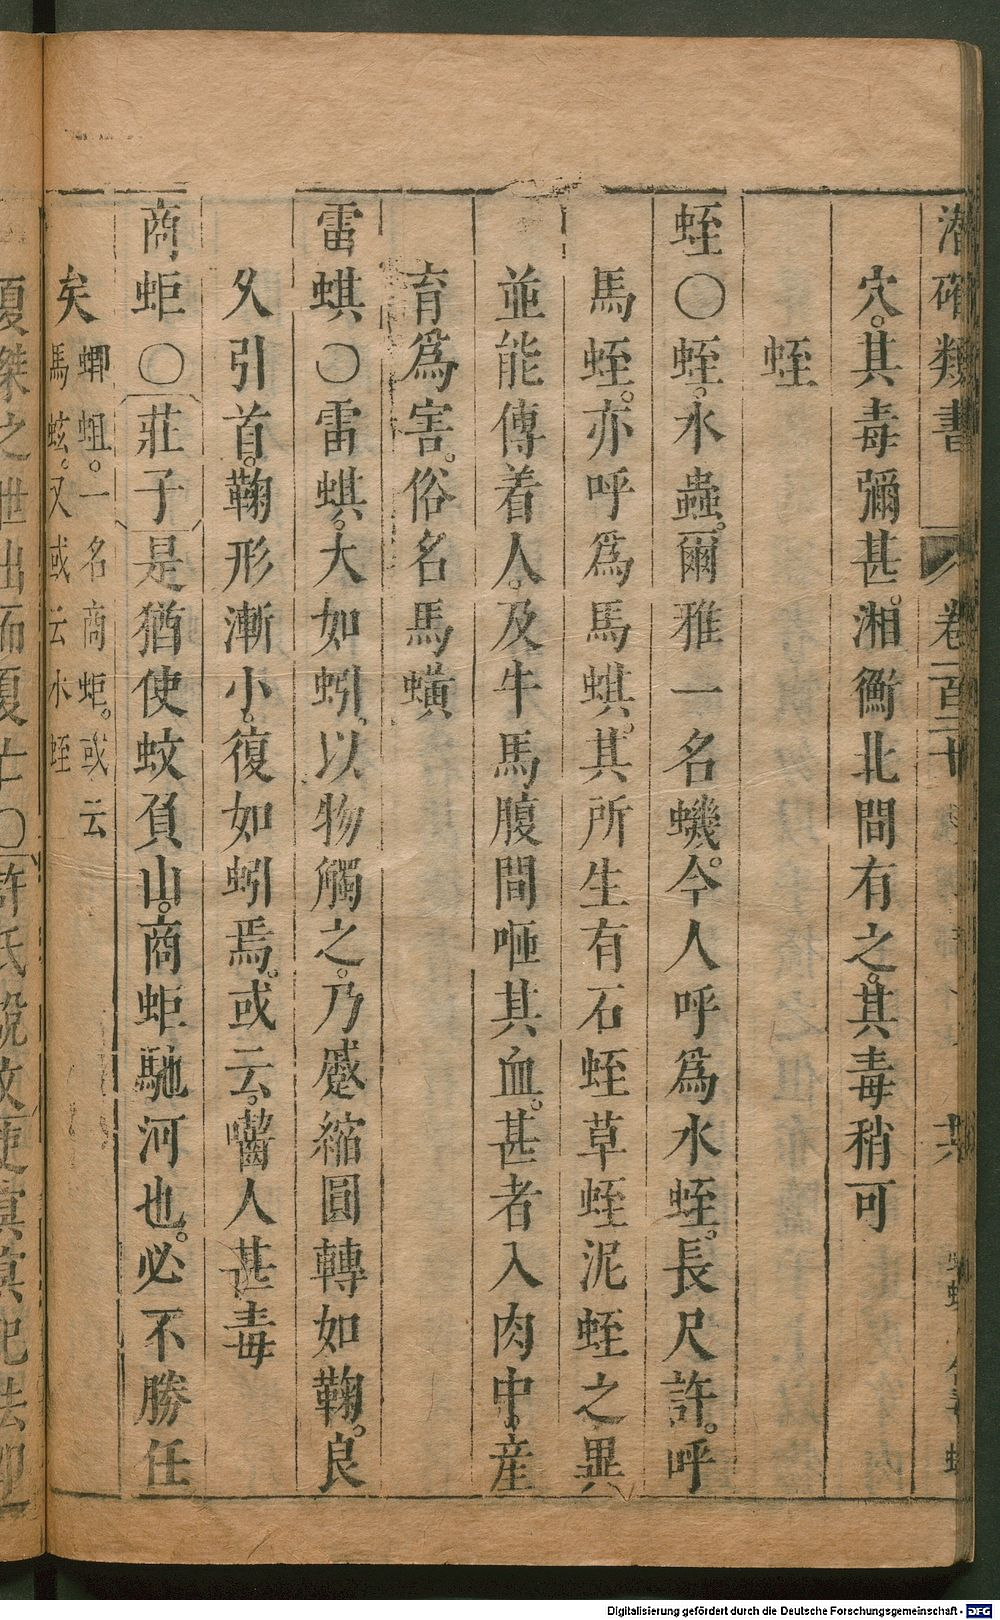 潛確類書 卷一百二十
穴。其毒彌甚。湘衡北間有之。其毒稍可
蛭
蛭○蛭。水蟲。爾雅一名蟣。今人呼爲水蛭。長尺許。呼
馬蛭。亦呼爲馬蜞。其所生有石蛭草蛭泥蛭之異
並能傳着人。及牛馬腹間咂其血。甚者入肉中。産
育爲害。俗名馬蟥
雷蜞○雷蜞。大如蚓。以物觸之。乃蹙縮圓轉如鞠。良
久引首。鞠形漸小。復如蚓焉。或云。嚙人甚毒
商蚷○莊子是猶使蚊負山。商蚷馳河也。必不勝任
矣 蝍蛆。一名商蚷。或云
馬蚿。又或云水蛭